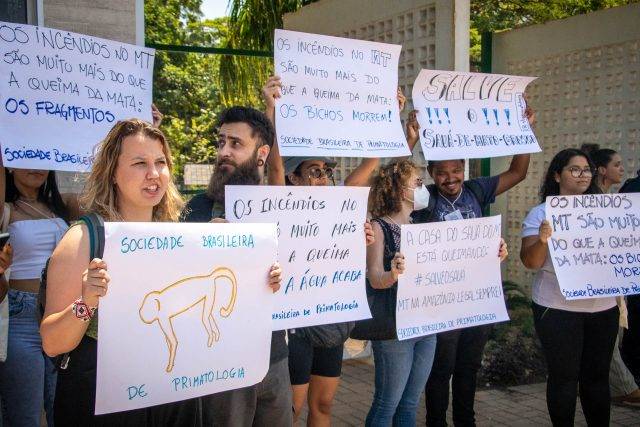 OS INCÊNDIOS NO MT
SÃO MUITO MAIS DO QUE
A QUEIMA DA MATA:
OS FRAGMENTOS
SOCIEDADE BRASILEIRA
OS INCÊNDIOS NO MT
SÃO MUITO MAIS DO
QUE A QUEIMA DA MATA:
OS BICHOS MORREM!
SOCIEDADE BRASILEIRA DE PRIMATOLOGIA
SALVE
!!! O !!!
SAUÁ-DE-
SOCIEDADE BRASILEIRA
DE PRIMATOLOGIA
OS INCÊNDIOS NO
MUITO MAIS DO
A QUEIMA
A ÁGUA ACABA
BRASILEIRA DE PRIMATOLOGIA
A CASA DO SAUÁ DO MT
ESTÁ QUEIMANDO:
#SALVEOSAUA
MT NA AMAZÔNIA LEGAL SEMPRE!
SOCIEDADE BRASILEIRA DE PRIMATOLOGIA
OS INCÊNDIOS NO
MT SÃO MUITO MAIS
DO QUE A QUEIMA DA
MATA: OS BICHOS
MORREM!
SOCIEDADE BRASILEIRA DE